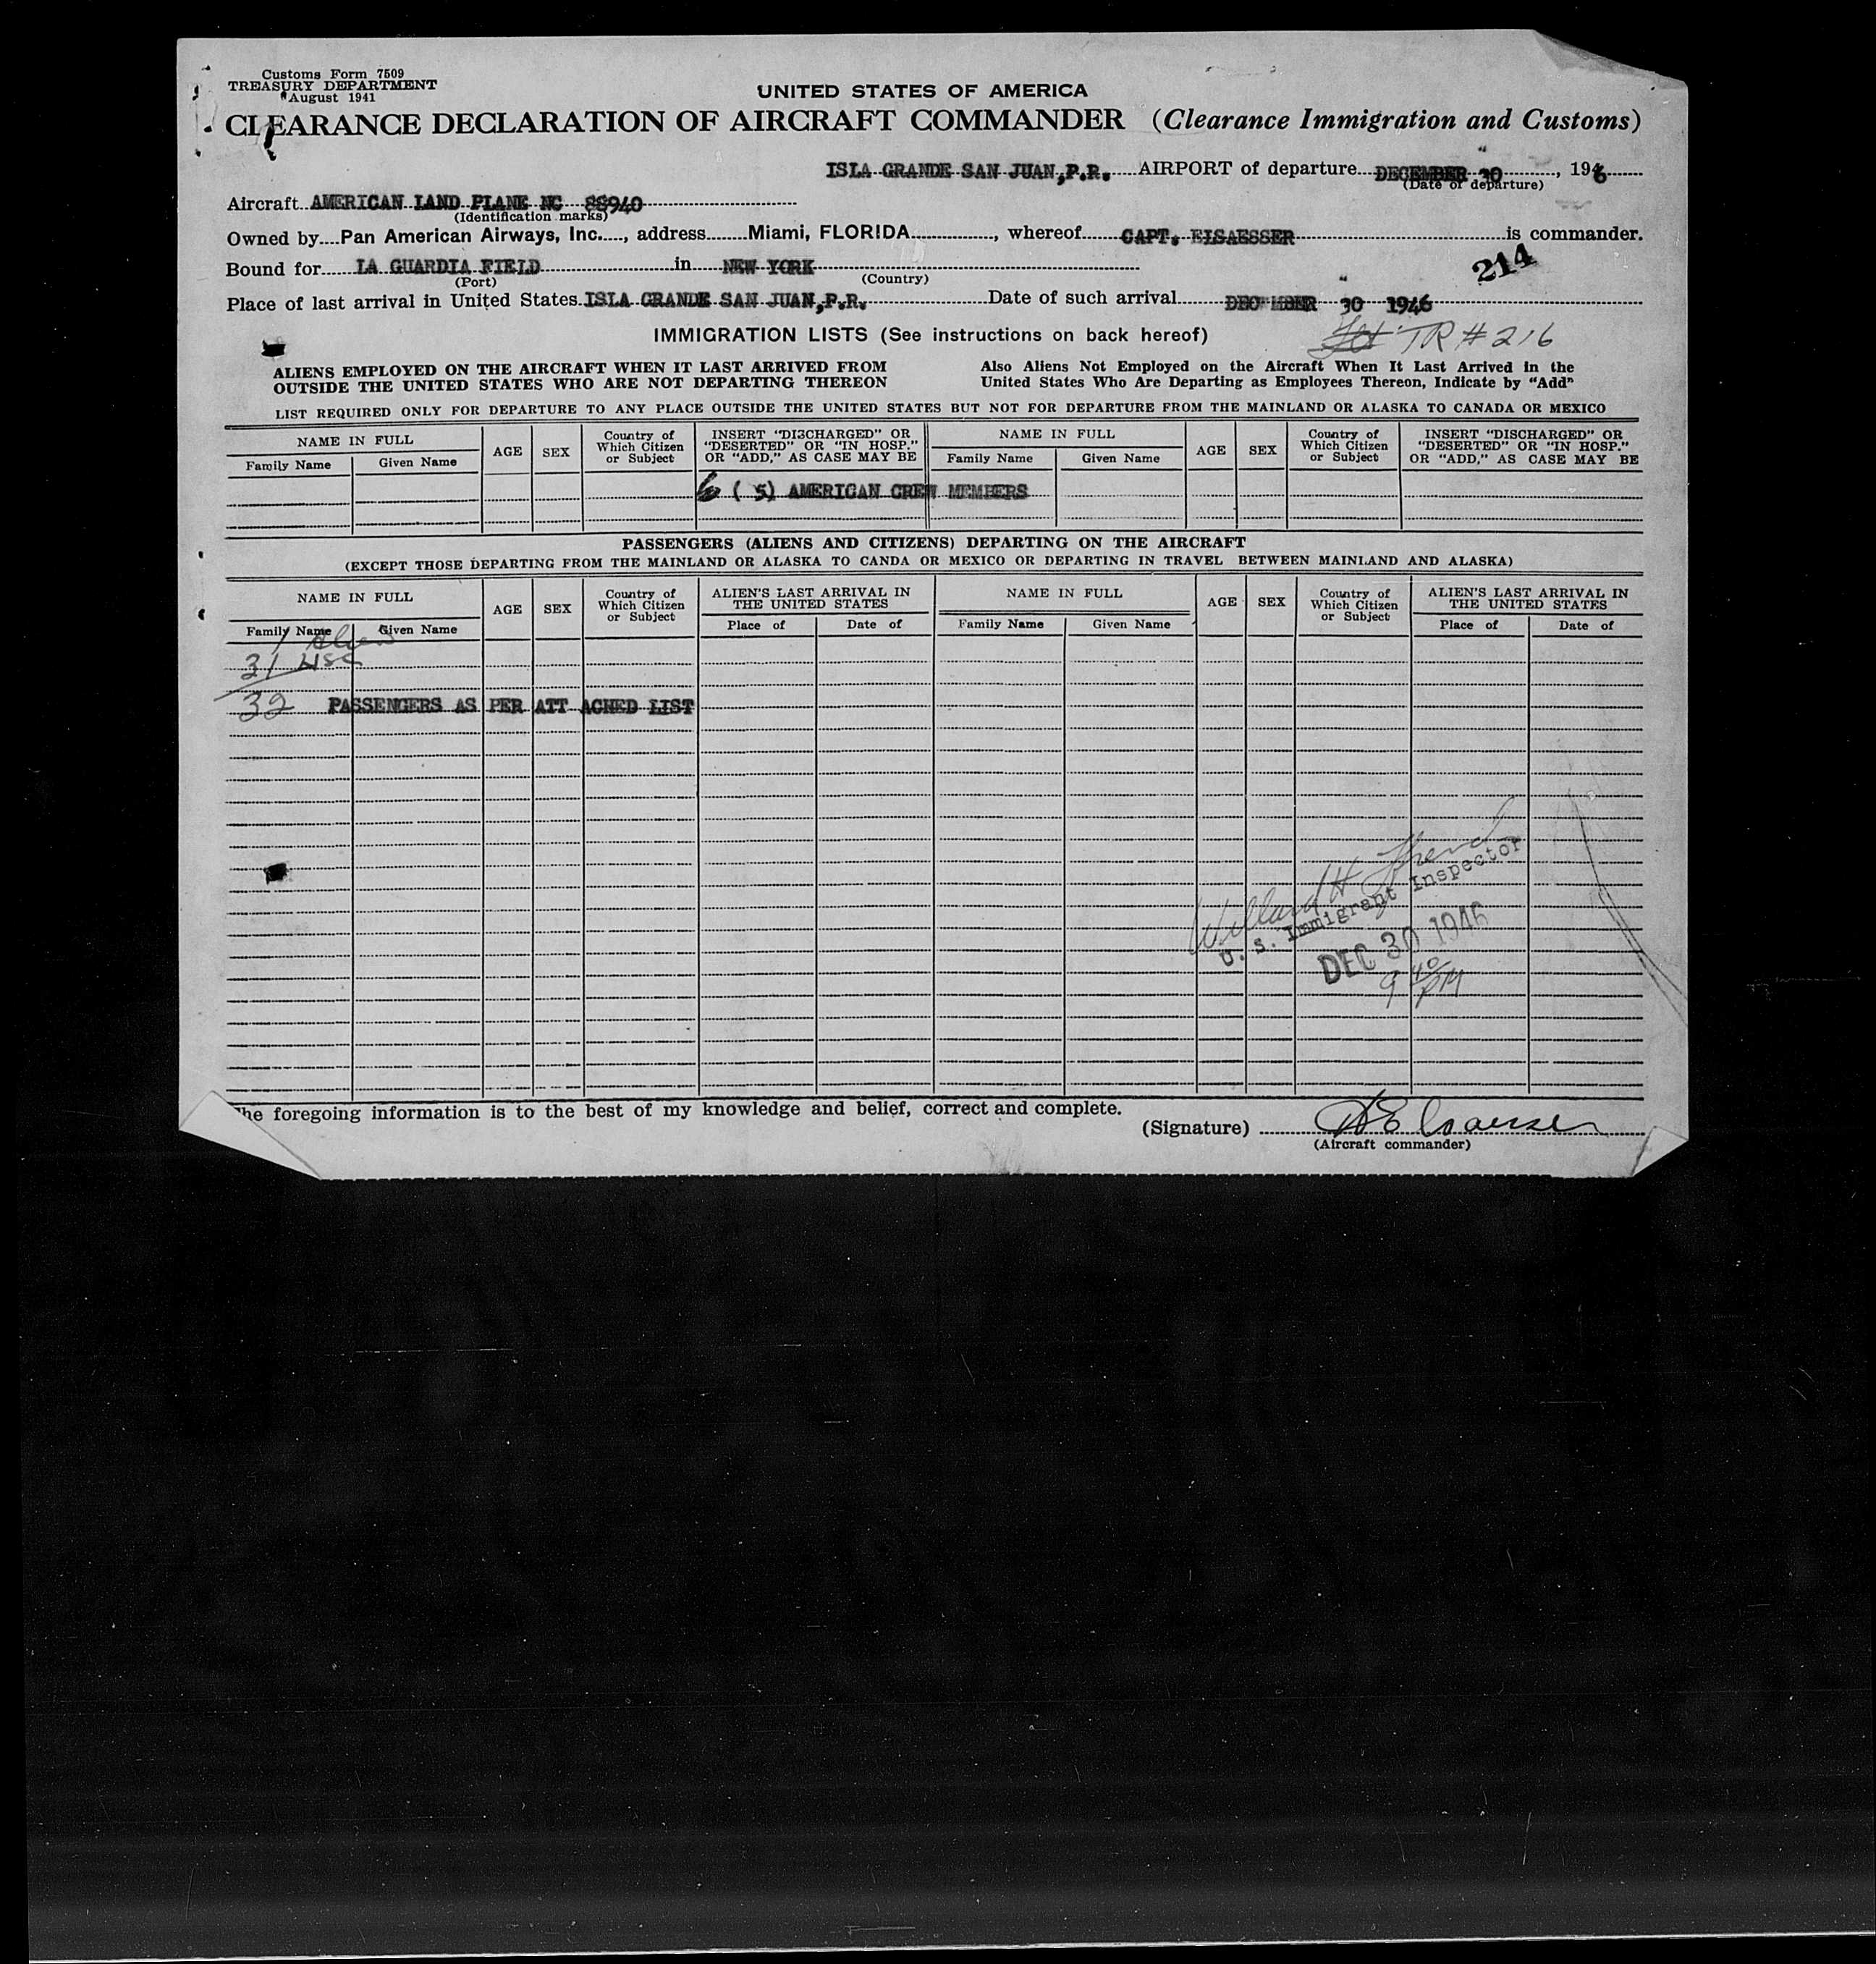 Customs Form 7509
TREASURY DEPARTMENT
August 1941
UNITED STATES OF AMERICA
CLEARANCE DECLARATION OF AIRCRAFT COMMANDER (Clearance Immigration and Customs)
ISLA GRANDE SAN JUAN, P.R. AIRPORT of departure DECEMBER 30, 1946
(Date of departure)
Aircraft AMERICAN LAND PLANE NC 88940
(Identification marks)
Owned by Pan American Airways, Inc., address Miami, FLORIDA, whereof CAPT. EISAESSER is commander.
214
Bound for LA GUARDIA FIELD in NEW YORK
(Port) (Country)
Place of last arrival in United States ISLA GRANDE SAN JUAN, P.R. Date of such arrival DECEMBER 30 1946
IMMIGRATION LISTS (See instructions on back hereof)
TR # 216
ALIENS EMPLOYED ON THE AIRCRAFT WHEN IT LAST ARRIVED FROM
OUTSIDE THE UNITED STATES WHO ARE NOT DEPARTING THEREON
Also Aliens Not Employed on the Aircraft When It Last Arrived in the
United States Who Are Departing as Employees Thereon, Indicate by "Add"
LIST REQUIRED ONLY FOR DEPARTURE TO ANY PLACE OUTSIDE THE UNITED STATES BUT NOT FOR DEPARTURE FROM THE MAINLAND OR ALASKA TO CANADA OR MEXICO
NAME IN FULL AGE SEX Country of Which Citizen or Subject INSERT "DISCHARGED" OR "DESERTED" OR "IN HOSP." OR "ADD," AS CASE MAY BE NAME IN FULL AGE SEX Country of Which Citizen or Subject INSERT "DISCHARGED" OR "DESERTED" OR "IN HOSP." OR "ADD," AS CASE MAY BE
Family Name Given Name Family Name Given Name
6 ( 5) AMERICAN CREW MEMBERS
PASSENGERS (ALIENS AND CITIZENS) DEPARTING ON THE AIRCRAFT
(EXCEPT THOSE DEPARTING FROM THE MAINLAND OR ALASKA TO CANDA OR MEXICO OR DEPARTING IN TRAVEL BETWEEN MAINLAND AND ALASKA)
NAME IN FULL AGE SEX Country of Which Citizen or Subject ALIEN'S LAST ARRIVAL IN THE UNITED STATES NAME IN FULL AGE SEX Country of Which Citizen or Subject ALIEN'S LAST ARRIVAL IN THE UNITED STATES
Family Name Given Name Place of Date of Family Name Given Name Place of Date of
1 Alien
31 USC
32 PASSENGERS AS PER ATT ACHED LIST
Willard H
U. S. Immigrant Inspector
DEC 30 1946
9 40 PM
The foregoing information is to the best of my knowledge and belief, correct and complete.
(Signature)
(Aircraft commander)